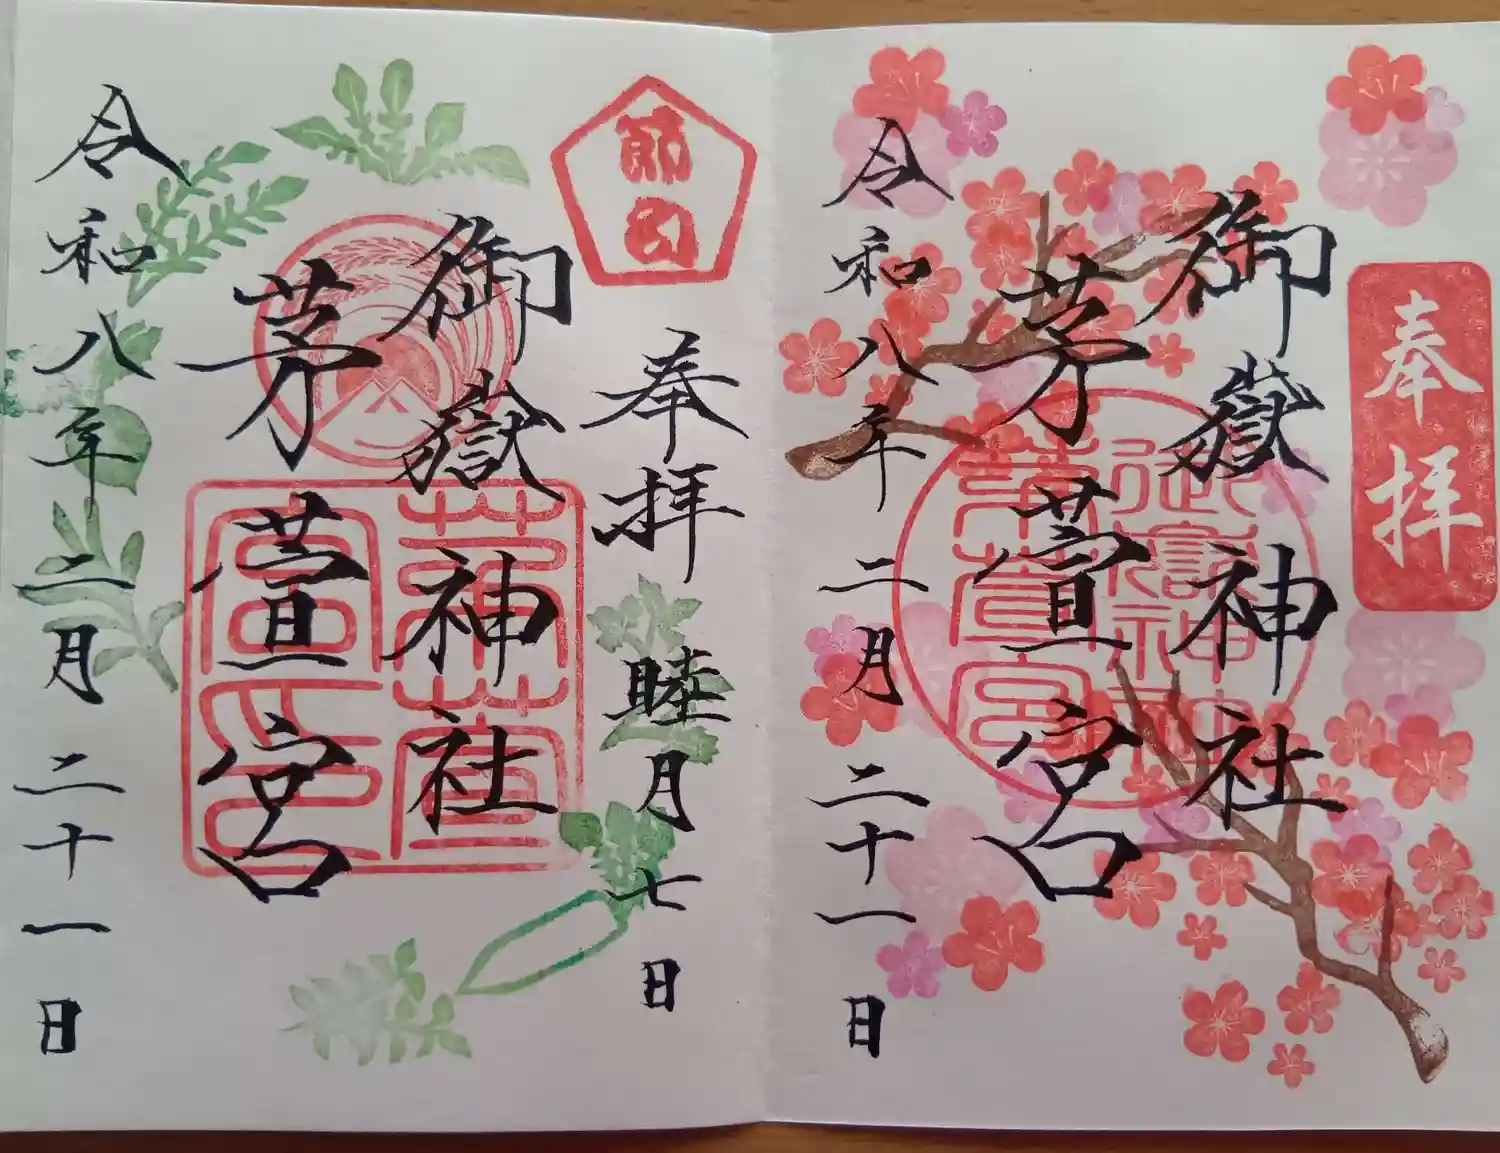 奉拝
御嶽神社
茅萱宮
令和八年二月二十一日
御嶽神社
茅萱宮
節句
奉拝
睦月七日
御嶽神社
茅萱宮
令和八年二月二十一日
茅萱宮印